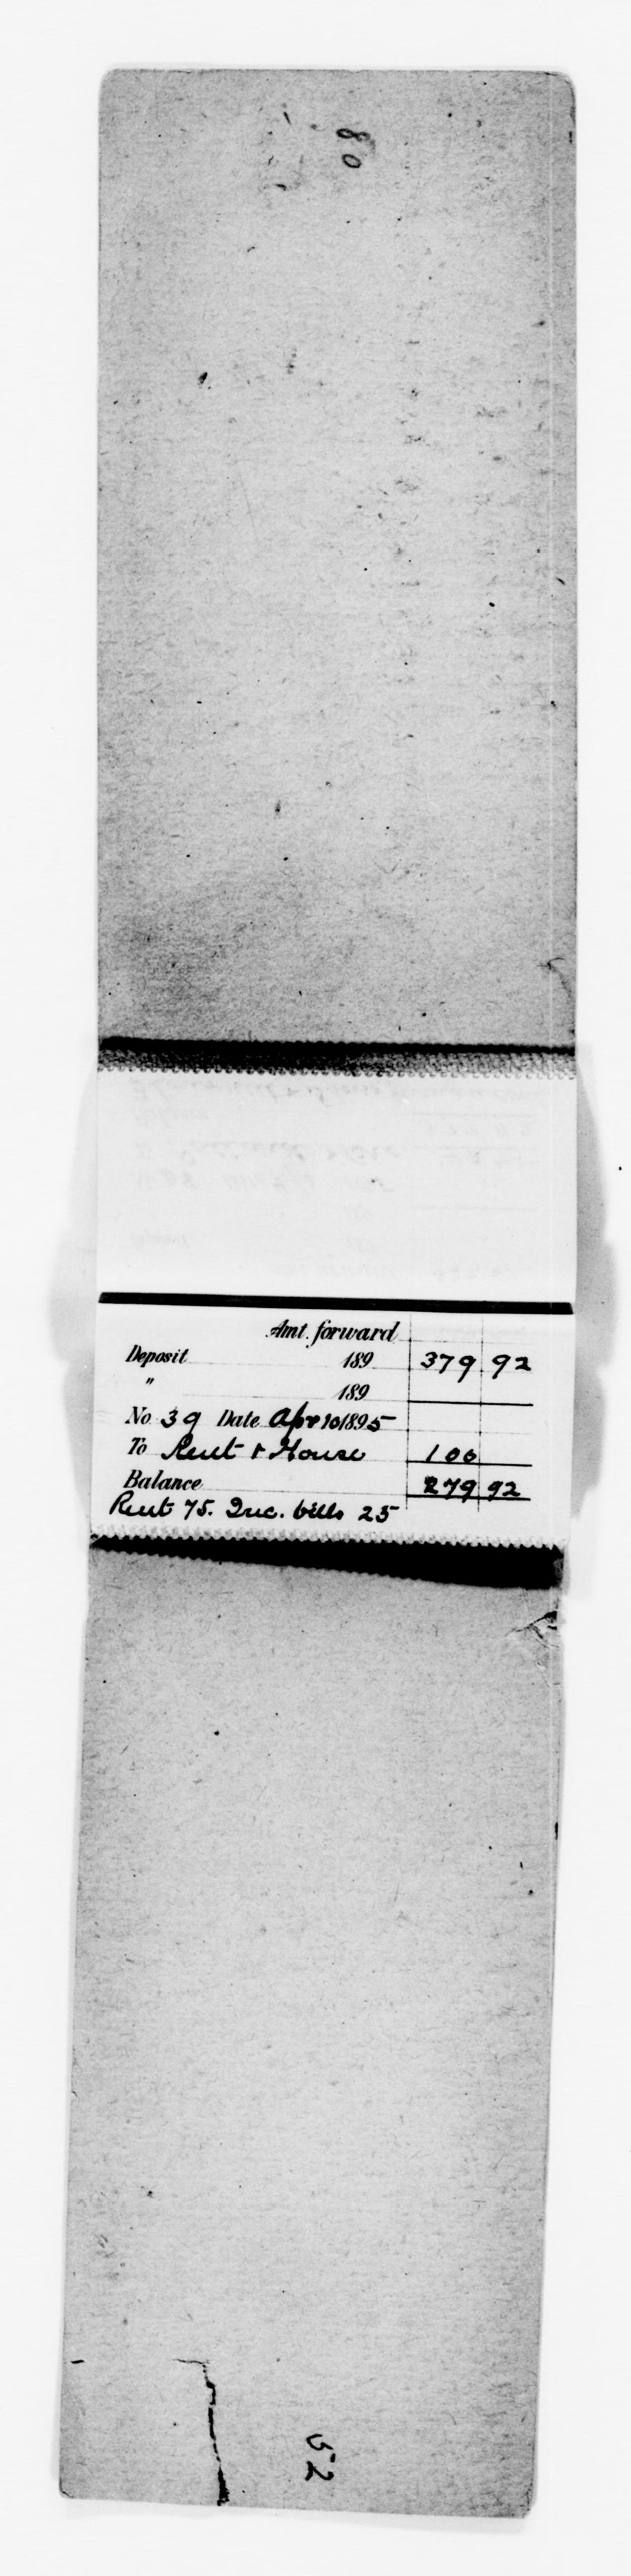 80
Amt. forward
Deposit 189 379 92
" 189
No. 39 Date Apr 10 1895
To Rent & House 100
Balance 279 92
Rent 75. Inc. bills 25
52